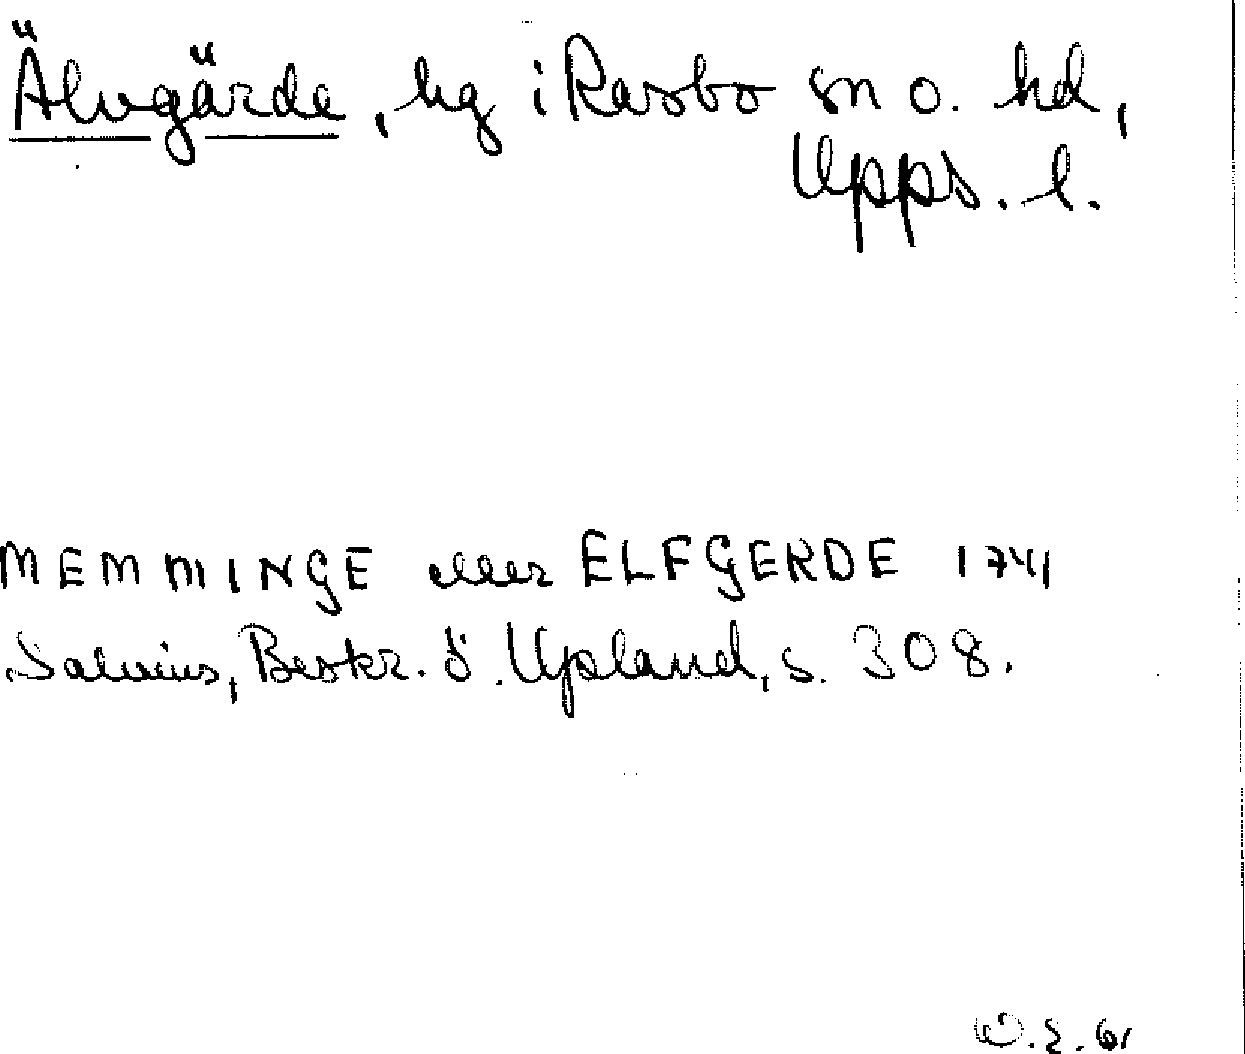 Älvgärde, hg i Rasbo sn o. hd,
Upps. l.
MEMMINGE eller ELFGERDE 1741
Salvius, Beskr. ö. Upland, s. 308.
O.E. 61